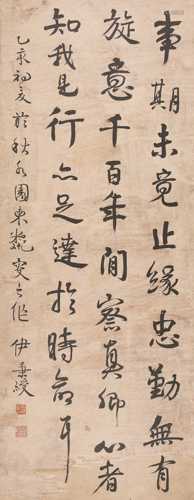 事期未竟止緣忠勤無有
旋意千百年間察真卿心者
知我是行亦足達於時命耳
乙亥初夏於秋水園東𮥼突之作 伊秉綬